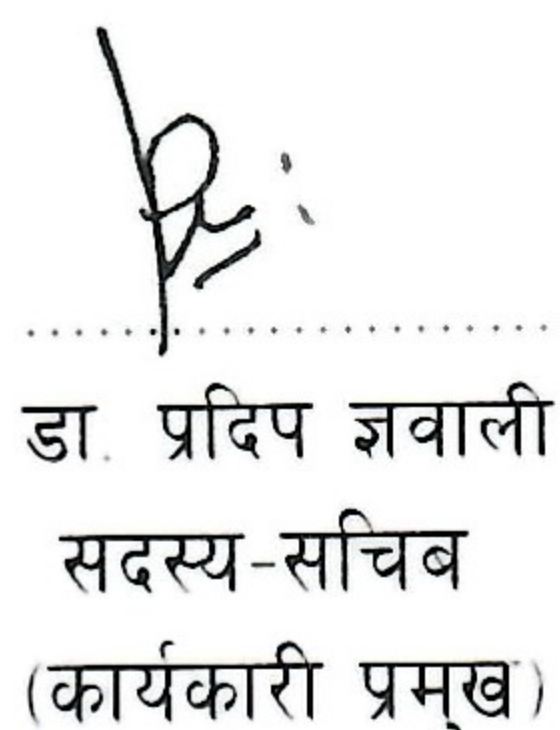 डा. प्रदिप ज्ञवाली
सदस्य-सचिब
(कार्यकारी प्रमुख)